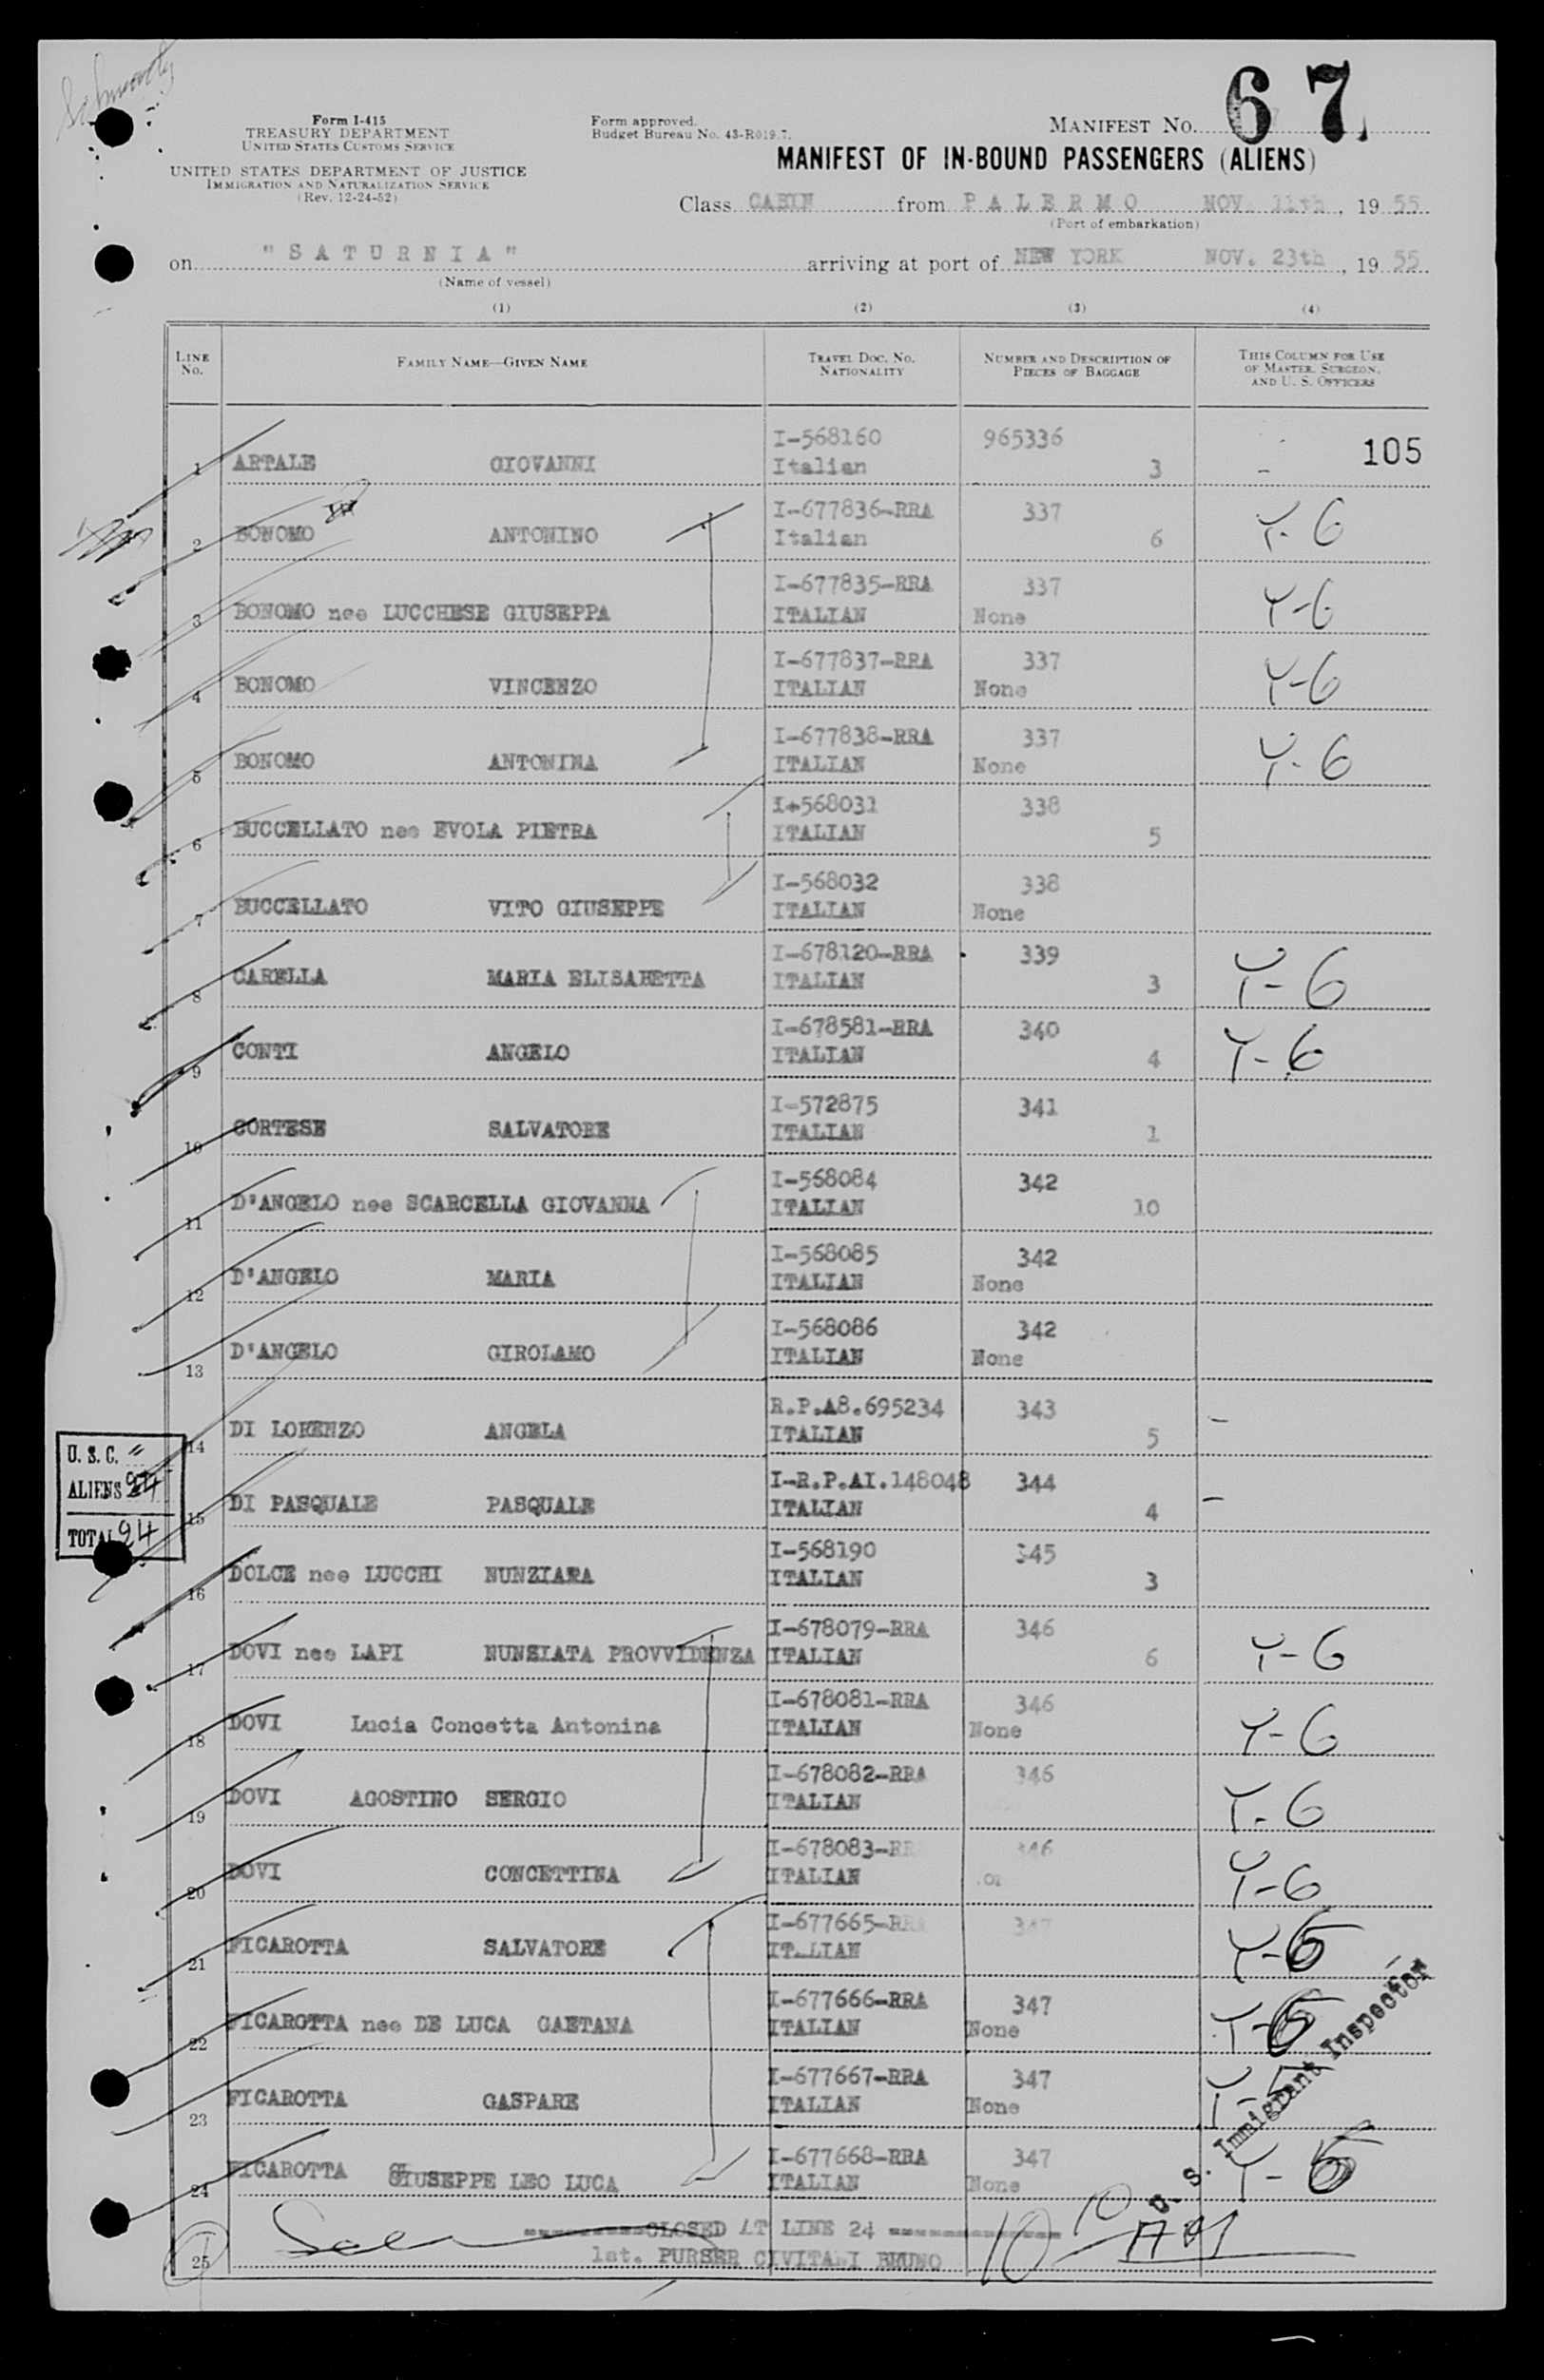 Form I-415
TREASURY DEPARTMENT
UNITED STATES CUSTOMS SERVICE
UNITED STATES DEPARTMENT OF JUSTICE
IMMIGRATION AND NATURALIZATION SERVICE
(Rev. 12-24-52)
Form approved.
Budget Bureau No. 43-R019.7.
MANIFEST NO. 67
MANIFEST OF IN-BOUND PASSENGERS (ALIENS)
Class CABIN from PALERMO NOV. 11th, 1955
(Port of embarkation)
on "SATURNIA" arriving at port of NEW YORK NOV. 23th, 1955
(Name of vessel)
(1) (2) (3) (4)
LINE NO.
FAMILY NAME—GIVEN NAME
TRAVEL DOC. NO. NATIONALITY
NUMBER AND DESCRIPTION OF PIECES OF BAGGAGE
THIS COLUMN FOR USE OF MASTER, SURGEON, AND U. S. OFFICERS
105
I-568160 965336
1 ARTALE GIOVANNI Italian 3 -
I-677836-RRA 337
2 BONOMO ANTONINO Italian 6 Y-6
I-677835-RRA 337
3 BONOMO nee LUCCHESE GIUSEPPA ITALIAN None Y-6
I-677837-RRA 337
4 BONOMO VINCENZO ITALIAN None Y-6
I-677838-RRA 337
5 BONOMO ANTONINA ITALIAN None Y-6
I+568031 338
6 BUCCELLATO nee EVOLA PIETRA ITALIAN 5
I-568032 338
7 BUCCELLATO VITO GIUSEPPE ITALIAN None
I-678120-RRA 339
8 CARELLA MARIA ELISABETTA ITALIAN 3 Y-6
I-678581-RRA 340
9 CONTI ANGELO ITALIAN 4 Y-6
I-572875 341
10 CORTESE SALVATORE ITALIAN 1
I-568084 342
11 D'ANGELO nee SCARCELLA GIOVANNA ITALIAN 10
I-568085 342
12 D'ANGELO MARIA ITALIAN None
I-568086 342
13 D'ANGELO GIROLAMO ITALIAN None
R.P.A8.695234 343
14 DI LORENZO ANGELA ITALIAN 5 -
I-R.P.AI.148048 344
15 DI PASQUALE PASQUALE ITALIAN 4 -
I-568190 345
16 DOLCE nee LUCCHI NUNZIARA ITALIAN 3
I-678079-RRA 346
17 DOVI nee LAPI NUNZIATA PROVVIDENZA ITALIAN 6 Y-6
I-678081-RRA 346
18 DOVI Lucia Concetta Antonina ITALIAN None Y-6
I-678082-RRA 346
19 DOVI AGOSTINO SERGIO ITALIAN Y-6
I-678083-RR 346
20 DOVI CONCETTINA ITALIAN Y-6
I-677665-RR 347
21 FICAROTTA SALVATORE ITALIAN Y-6
I-677666-RRA 347
22 FICAROTTA nee DE LUCA GAETANA ITALIAN None Y-6
I-677667-RRA 347
23 FICAROTTA GASPARE ITALIAN None
I-677668-RRA 347
24 FICAROTTA GIUSEPPE LEO LUCA ITALIAN None Y-6
CLOSED AT LINE 24
25 1st. PURSER CIVITANI BRUNO
U. S. C.
ALIENS 24
TOTAL 24
U. S. Immigrant Inspector
10
10